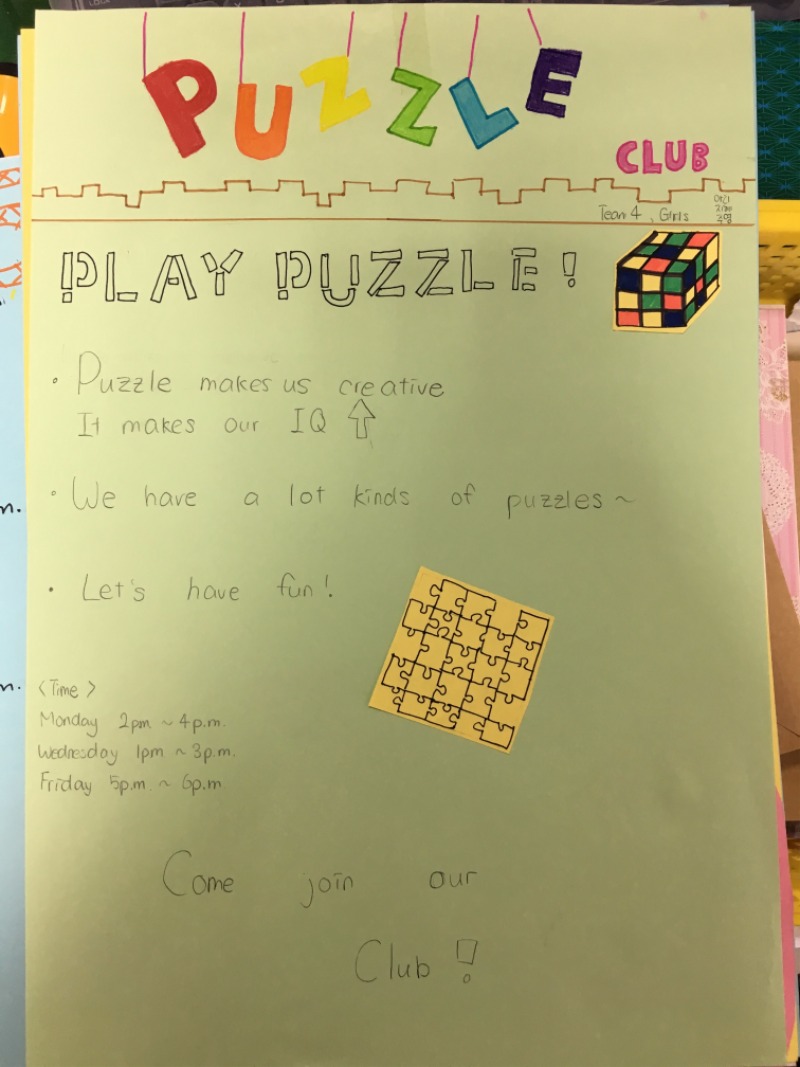 PUZZLE
CLUB
Team 4, Girls
PLAY PUZZLE!
• Puzzle makes us creative
It makes our IQ ↑
• We have a lot kinds of puzzles~
• Let's have fun!
<Time>
Monday 2pm ~ 4p.m.
Wednesday 1pm ~ 3p.m.
Friday 5p.m. ~ 6p.m
Come join our
Club!